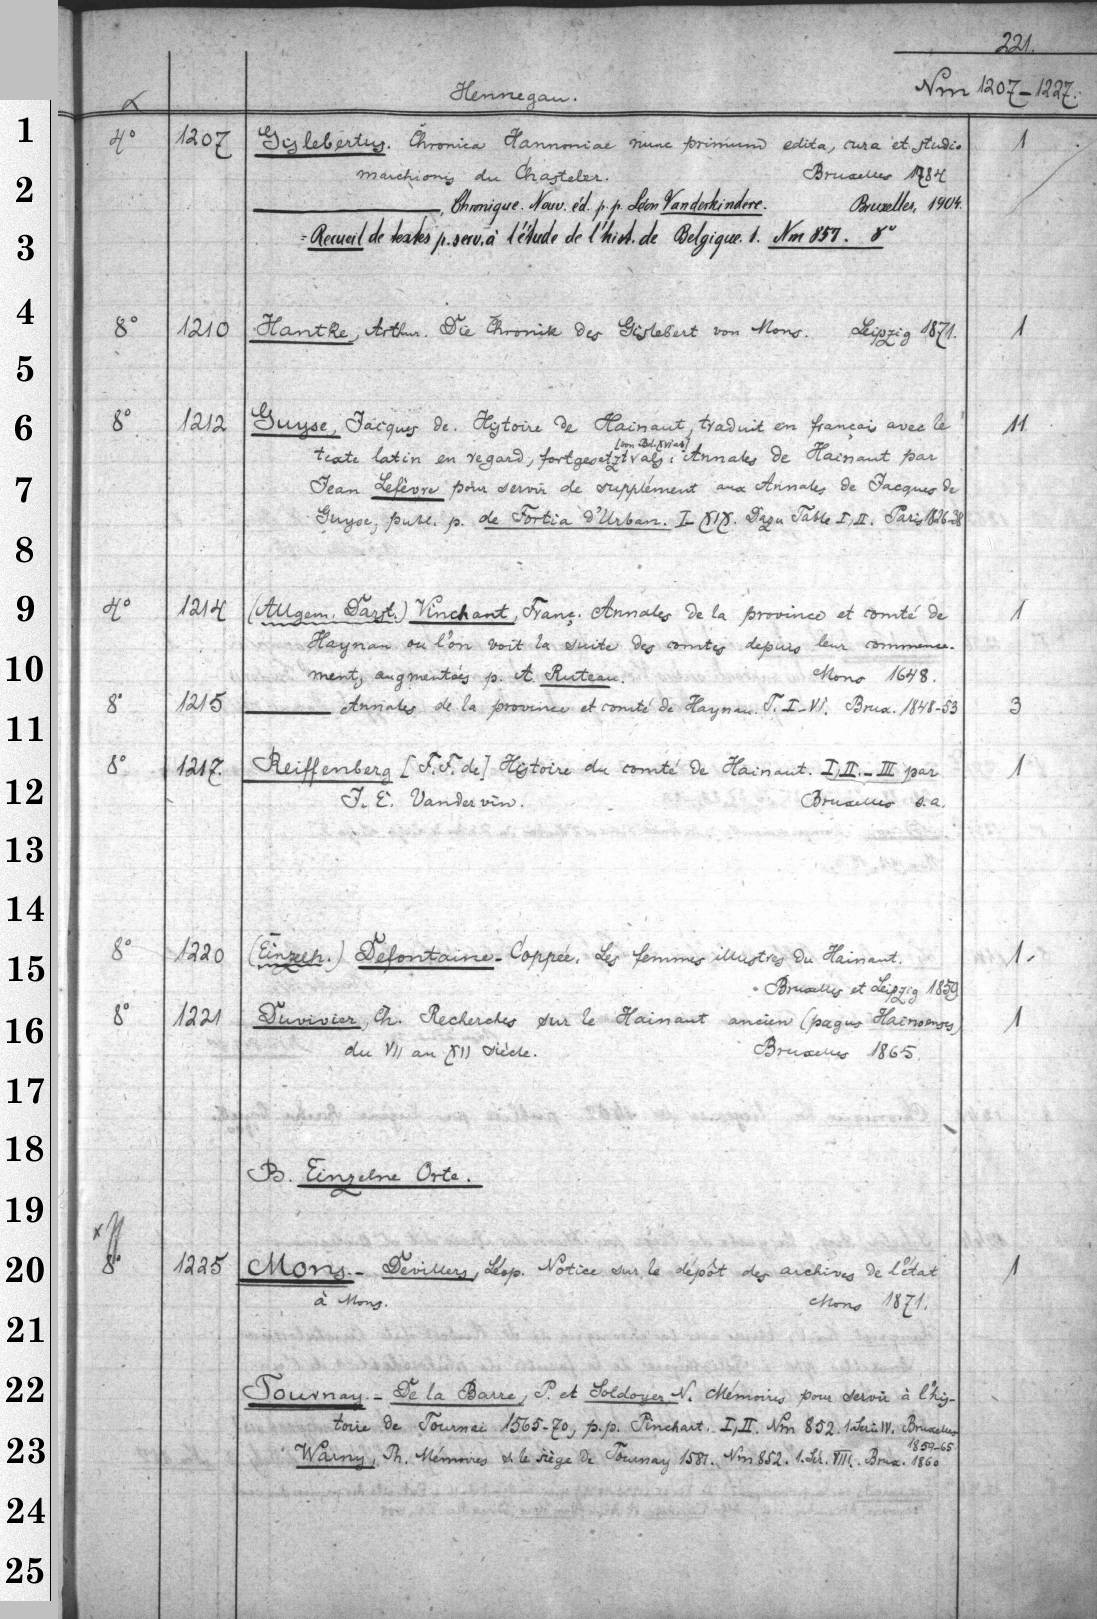 221.
Hennegau. Nm 1207-1227.
4° 1207 Gislebertus. Chronica Hannoniae nunc primum edita, cura et studio 1
marchionis du Chasteler. Bruxelles 1784
, Chronique. Nouv. éd. p. p. Léon Vanderkindere. Bruxelles, 1904.
= Recueil de textes p. serv. à l'étude de l'hist. de Belgique. 1. Nm 857. 8°
8° 1210 Hantke, Arthur. Die Chronik des Gislebert von Mons. Leipzig 1871. 1
8° 1212 Guyse, Jacques de. Histoire de Hainaut, traduit en français avec le 11
[von Bd. XVI ab]
texte latin en regard, fortgesetzt als: Annales de Hainaut par
Jean Lefèvre pour servir de supplément aux Annales de Jacques de
Guyse, publ. p. de Fortia d'Urban. I-XIX. Dazu Table I, II. Paris 1826-38
4° 1214 (Allgem. Darst.) Vinchant, Franç. Annales de la province et comté de 1
Haynau ou l'on voit la suite des comtes depuis leur commence-
ment, augmentées p. A. Ruteau. Mons 1648.
8° 1215 Annales de la province et comté de Haynau. T. I-VI. Brux. 1848-53 3
8° 1217. Reiffenberg [F. F. de] Histoire du comté de Hainaut. I, II. - III par 1
J. E. Vandervin. Bruxelles s.a.
8° 1220 (Einzelh.) Defontaine-Coppée. Les femmes illustres du Hainaut. 1.
Bruxelles et Leipzig 1859
8° 1221 Duvivier, Ch. Recherches sur le Hainaut ancien (pagus Hainoensis) 1
du VII au XII siècle. Bruxelles 1865.
B. Einzelne Orte.
8° 1225 Mons. - Devillers, Léop. Notice sur le dépôt des archives de l'état 1
à Mons. Mons 1871.
Tournay. - De la Barre, P. et Soldoyer N. Mémoires pour servir à l'his-
toire de Tournai 1565-70, p. p. Pinchart. I, II. Nm 852. 1. Ser. IV. Bruxelles
1859-65
Warny, Ph. Mémoires s. le siège de Tournay 1581. Nm 852. 1. Sér. VIII. Brux. 1860
1
2
3
4
5
6
7
8
9
10
11
12
13
14
15
16
17
18
19
20
21
22
23
24
25